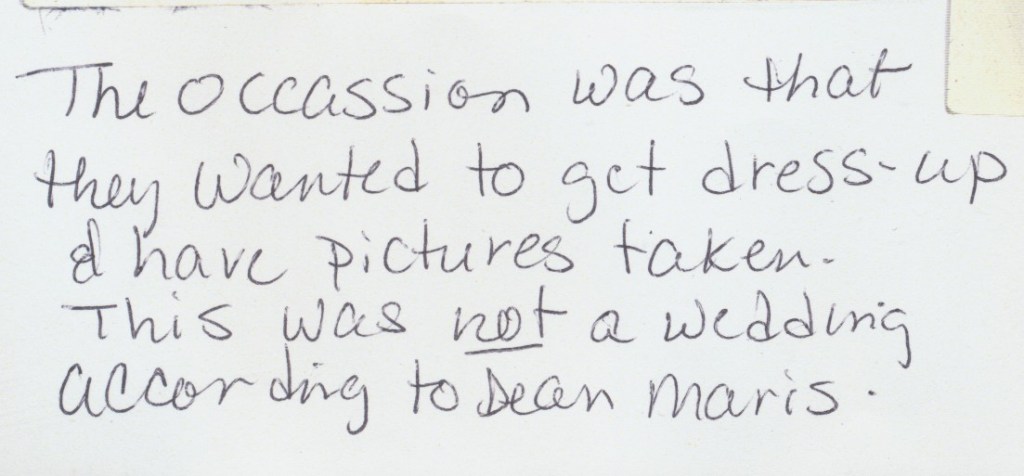 The Occassion was that
they wanted to get dress-up
& have pictures taken.
This was not a wedding
according to Dean Maris.